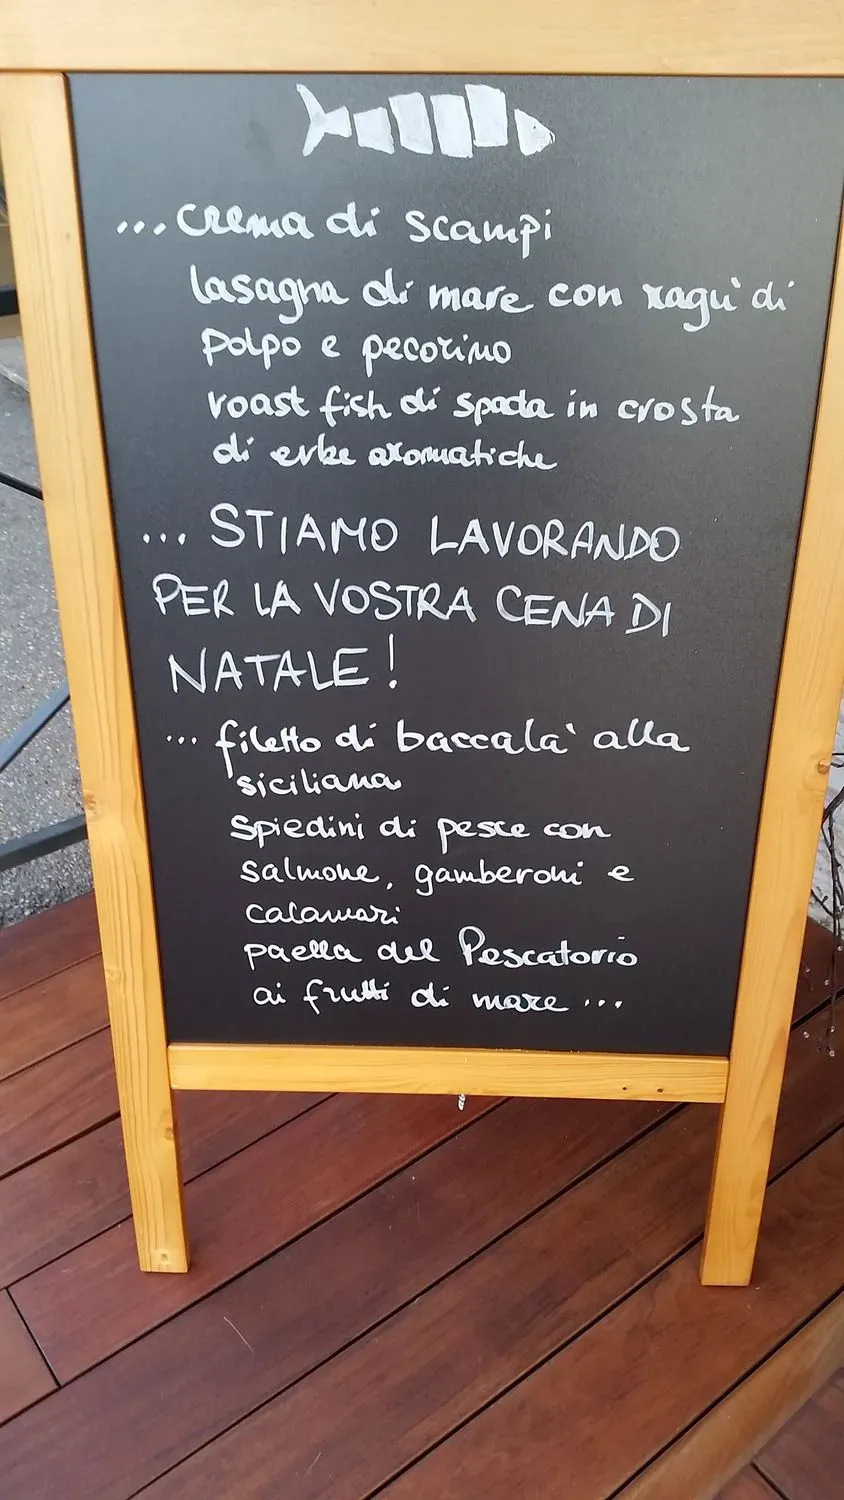 ...crema di scampi
lasagna di mare con ragù di
polpo e pecorino
roast fish di spada in crosta
di erbe aromatiche
... STIAMO LAVORANDO
PER LA VOSTRA CENA DI
NATALE!
... filetto di baccala' alla
siciliana
spiedini di pesce con
salmone, gamberoni e
calamari
paella del Pescatorio
ai frutti di mare ...